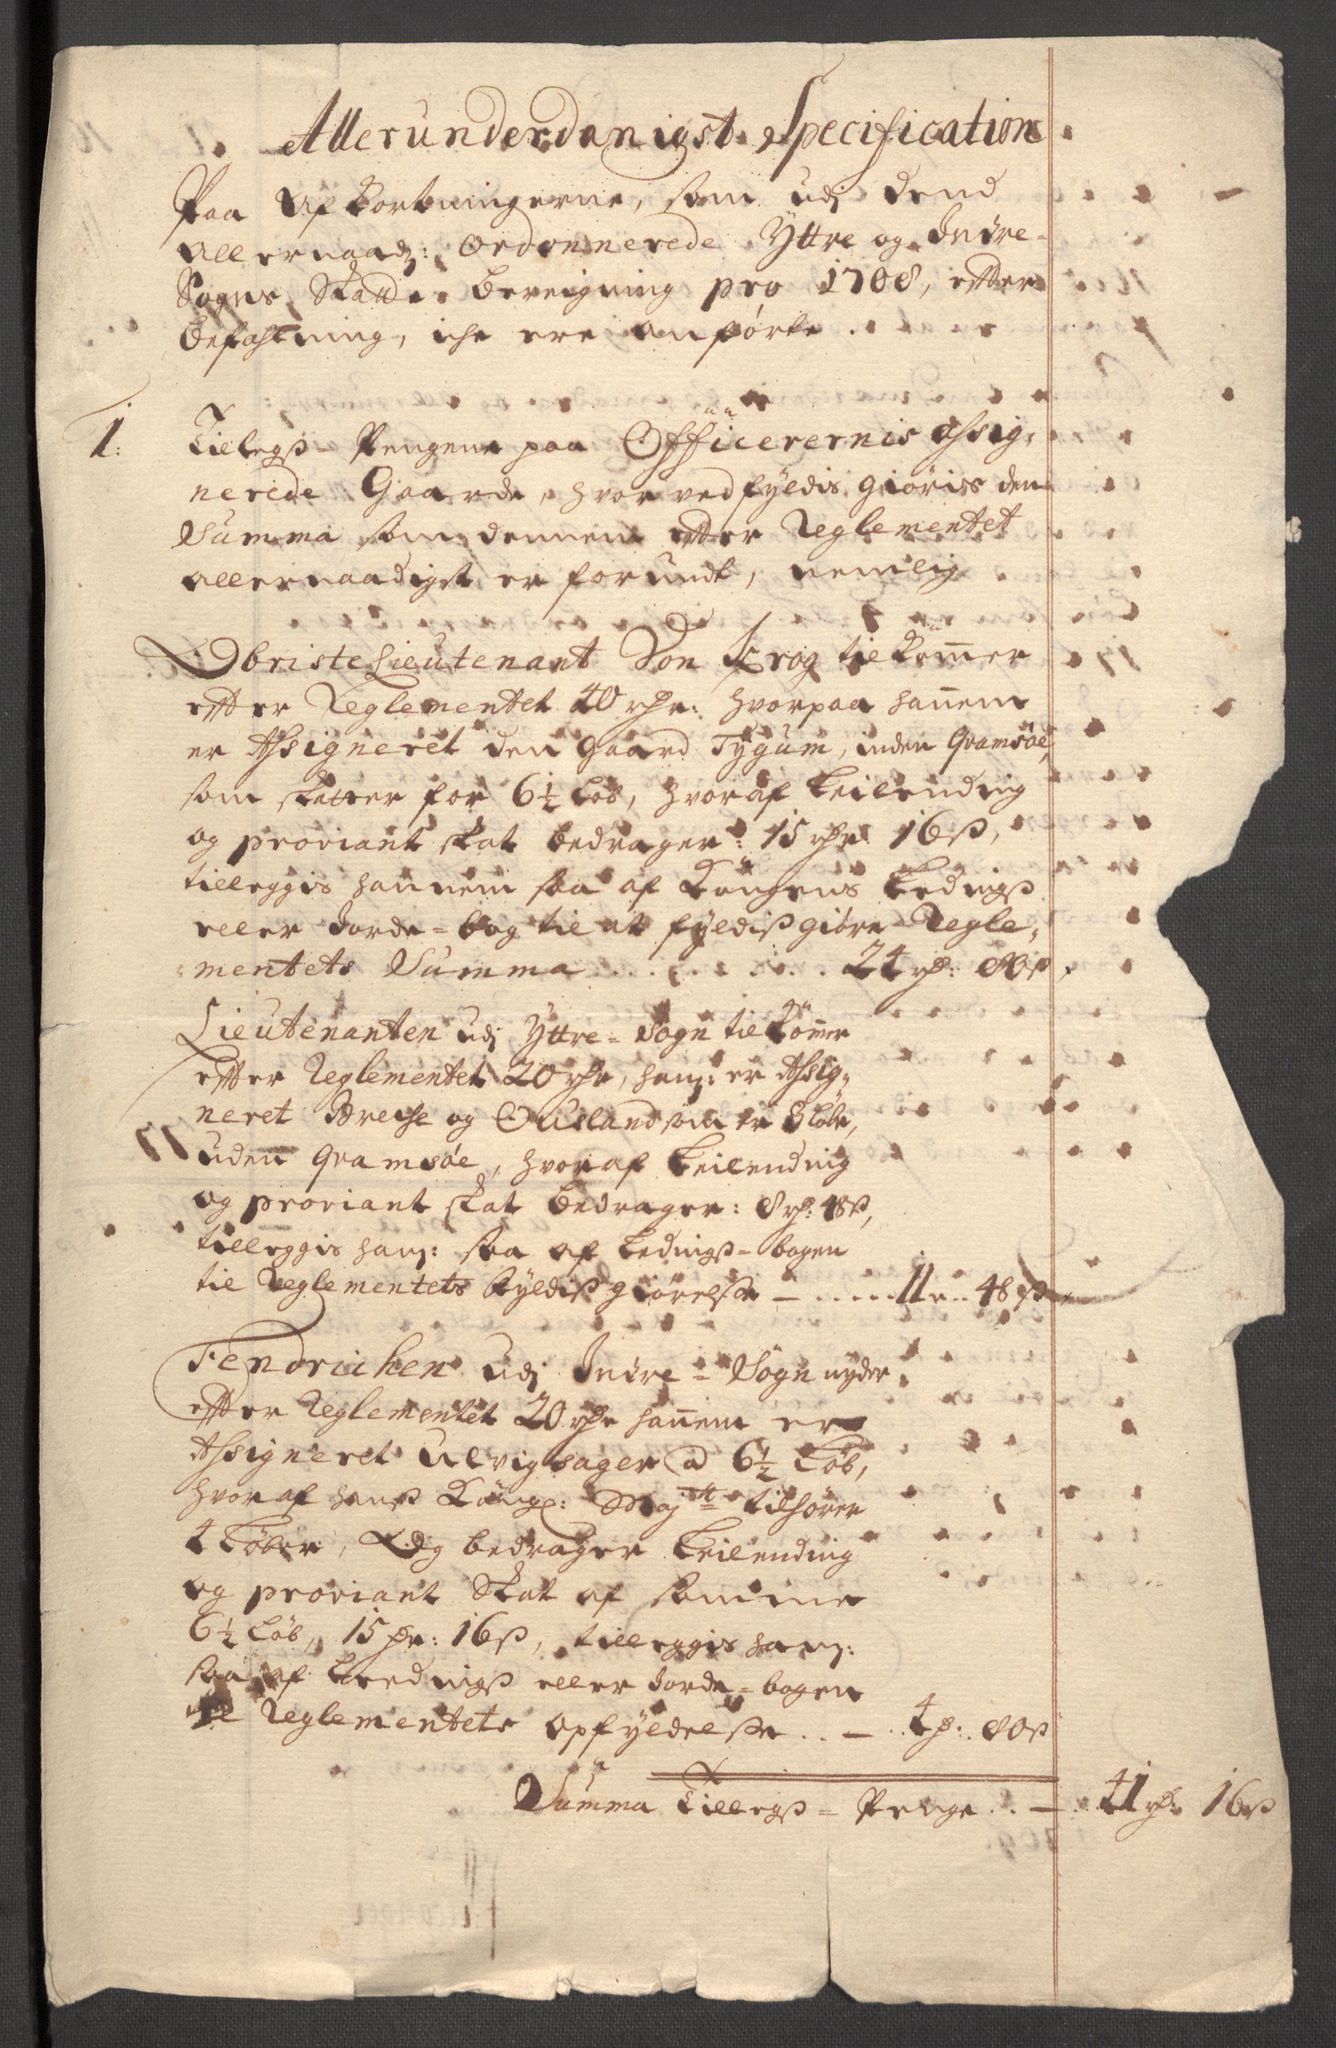 Allerunderdanigst Specification
Paa Afkortningerne, som udj dend
allernaad: Ordonnerede Yttre og Indre
Sogns Skatte Bereigning pro 1708, efter
befahlning, iche ere anførte
1: Tillegs Pengene paa Officerernis Assig-
nerede Gaarde, hvorved fyldis giøris den
Summa som dennem efter Reglementet
allernaadigst er forundt, nemlig
Obriste Lieutenant Von Krog tilkommer
efter Reglementet 40 rdr: hvorpaa hannem
er Assigneret den Gaard Tygum, inden Gramsøe,
som skatter for 6½ Løb, hvoraf Leilending
og proviant skat bedrager: 15 rdr 16 ß,
tilleggis hannem saa af Kongens Lednings
eller Jorde-bog til at fyldisgiøre Regle-
mentets Summa 24 rd: 80 ß
Lieutenanten udj Yttre-Sogn tilkommer
efter Reglementet 20 rdr, han: er Assig-
neret Breche og Ousland som er 8 Løb,
uden Gramsøe, hvoraf Leilending
og proviant skat bedrager: 8 rd: 48 ß,
tilleggis han: saa af Lednings-bogen
til Reglementets fyldisgiørelse 11 „ 48 ß
Fendrichen udj Indre-Sogn nyder
efter Reglementet 20 rdr hannem er
Assigneret Ulvigsager a 6½ Løb,
hvoraf hans Kongl: Maytt tilhører
4 Løber, Og bedrager Leilending
og proviant Skat af samme
6½ Løb, 15 dr: 16 ß, tilleggis han:
saa af Lednings eller Jorde-bogen
til Reglementets opfyldelse 4 d: 80 ß
Summa Tillegs-Penge 41 rd: 16 ß